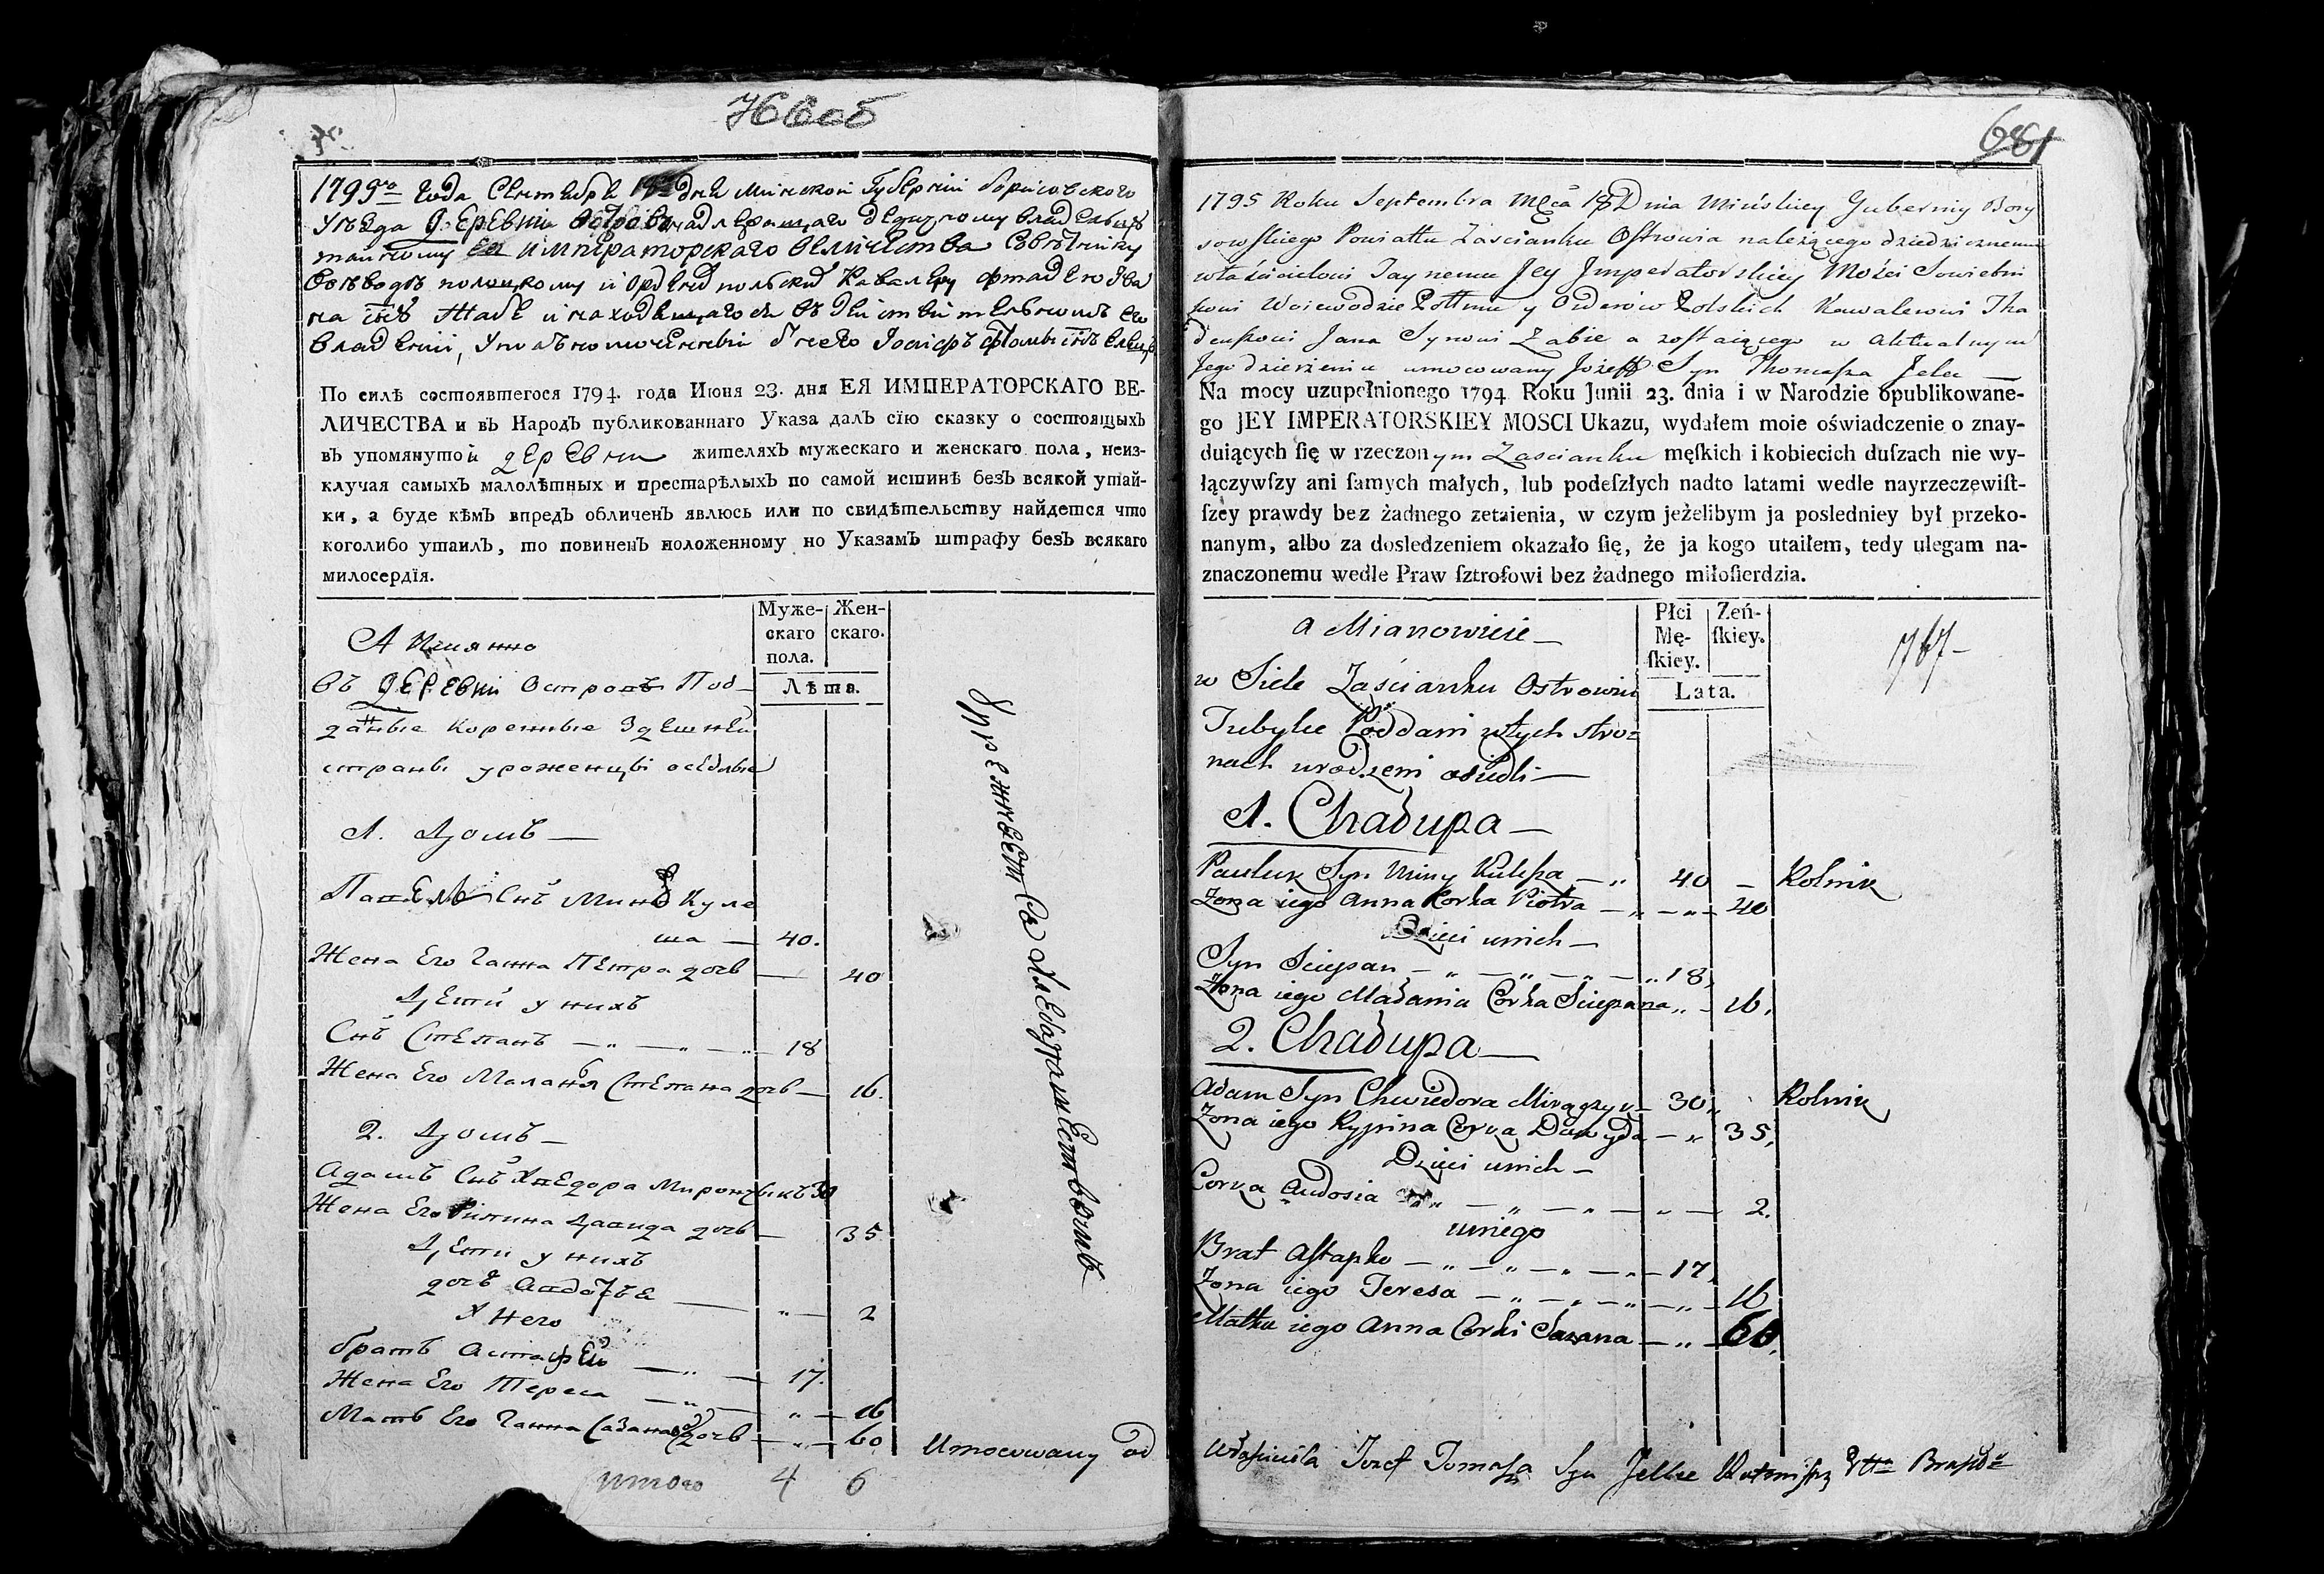 681
1795го года Сентября 18 дня Минской Губернии Борисовского
уѣзда деревни Островъ надлежащаго дедичному владельцу
тайному ея императорскаго величества Совѣтнику
воеводѣ полоцкому и орденов польских Кавалеру Фтадею Ива
на сыну Жабе и находящагося въ действительномъ его
владении, уполномоченный
По силѣ состоявшегося 1794. года Июня 23. дня ЕЯ ИМПЕРАТОРСКАГО ВЕ-
ЛИЧЕСТВА и въ Народъ публикованнаго Указа далъ сїю сказку о состоящыхъ
въ упомянутой деревни жителяхъ мужескаго и женскаго пола, неиз-
ключая самыхъ малолѣтныхъ и престарѣлыхъ по самой истинѣ безъ всякой утай-
ки, а буде кѣмъ впредъ обличенъ явлюсь или по свидѣтельству найдется что
коголибо утаилъ, то повиненъ положенному по Указамъ штрафу безъ всякаго
милосердїя.
Муже-
скаго
пола.
Жен-
скаго.
Лѣта.
А Имянно
въ деревни Островъ Под-
даные коренные здешней
страны уроженцы оседлые
1. Домъ —
Павелъ Снъ Мины Куле
ша — 40.
Жена Его Ганна Петра дочь — 40
Дети у нихъ
Снъ Степанъ — „ — „ — „ — 18
Жена Его Маланья Степана дочь — 16.
2. Домъ —
Адамъ Снъ Хведора Мирончыкъ 30
Жена Его Рипина Давида дочь — 35
Дети у нихъ
дочь Авдотья — „ — 2
У Него
братъ Астафей — „ — 17.
Жена Его Тереса — „ — „ — 16
Мать Его Ганна Сазана дочь — „ — 60
итого 4 6
Umocowany od
1795 Roku Septembra Mca 18 Dnia Mińskiey Gubernij Bory
sowskiego Powiattu Zaścianku Ostrowia należącego dziedzicznemu
właścicielowi Taynemu Jey Imperatorskiey Mości Sowietni
kowi Woiewodzie Połłmu y Orderów Polskich Kawalerowi Tha
deuszowi Jana Synowi Zabie a zostaiącego w aktualnym
Jego dzierżeniu umocowany Józeff Syn Thomasza Jelce —
Na mocy uzupełnionego 1794 Roku Junii 23. dnia i w Narodzie opublikowane-
go JEY IMPERATORSKIEY MOSCI Ukazu, wydałem moie oświadczenie o znay-
duiących ſię w rzeczonym Zascianku męſkich i kobiecich duſzach nie wy-
łączywſzy ani ſamych małych, lub podeſzłych nadto latami wedle nayrzeczewiſt-
ſzey prawdy bez żadnego zetaienia, w czym jeżelibym ja posledniey był przeko-
nanym, albo za dosledzeniem okazało ſię, że ja kogo utaiłem, tedy ulegam na-
znaczonemu wedle Praw ſztrofowi bez żadnego miłoſierdzia.
Płci
Mę-
ſkiey.
Zeń-
ſkiey.
Lata.
767-
a Mianowicie —
w Siele Zaścianku Ostrowiu
Tubylce Poddani w tych stro-
nach urodzeni osiedli —
1. Chałupa —
Pauluk Syn Miny Kulesza — „ 40 — Rolnik
Zona iego Anna Corka Piotra — „ — „ — 40
Dzieci u nich —
Syn Sciepan — „ — „ — „ — „ 18,
Zona iego Małania Corka Sciepana „ — 16.
2. Chałupa —
Adam Syn Chwiedora Mirączyk — 30 „ Rolnik
Zona iego Rypina Corka Dawyda — „ 35,
Dzieci u nich —
Corka Audosia „ — „ — „ — „ — 2.
u niego
Brat Astapko — „ — „ — „ — „ — 17,
Zona iego Teresa — „ — „ — „ — „ — 16
Matka iego Anna Corka Sazana — „ — 60,
właściciela Jozef Tomasza Syn Jelce